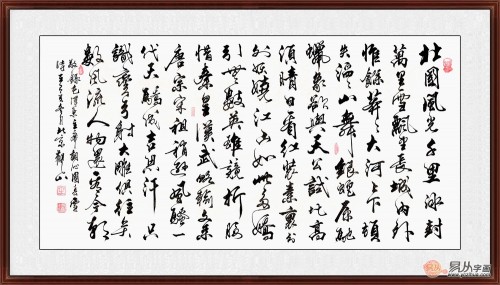 北國風光千里冰封
萬里雪飄望長城内外
惟餘莽莽大河上下頓
失滔滔山舞銀蛇原馳
蠟象欲與天公試比高
須晴日看紅裝素裹分
外妖嬈江山如此多嬌
引無數英雄競折腰
惜秦皇漢武略輸文采
唐宗宋祖稍遜風騷一
代天驕成吉思汗只
識彎弓射大雕俱往矣
數風流人物還看今朝
敬錄毛澤東主席詞沁園春雪
易从字画